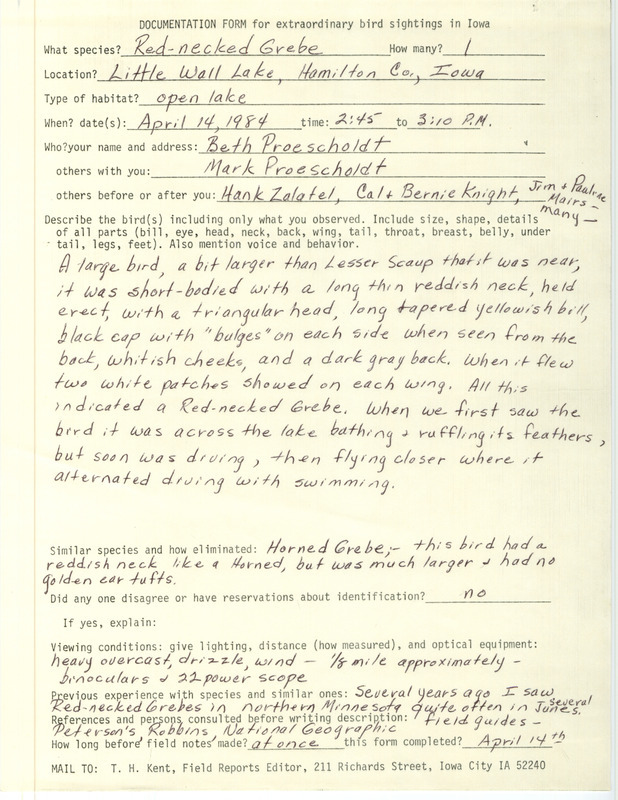 DOCUMENTATION FORM for extraordinary bird sightings in Iowa
What species? Red-necked Grebe How many? 1
Location? Little Wall Lake, Hamilton Co., Iowa
Type of habitat? open lake
When? date(s): April 14, 1984 time: 2:45 to 3:10 P.M.
Who?your name and address: Beth Proescholdt
others with you: Mark Proescholdt
others before or after you: Hank Zalatel, Cal + Bernie Knight, Jim + Pauline Mairs - many -
Describe the bird(s) including only what you observed. Include size, shape, details
of all parts (bill, eye, head, neck, back, wing, tail, throat, breast, belly, under
tail, legs, feet). Also mention voice and behavior.
A large bird, a bit larger than Lesser Scaup that it was near,
it was short-bodied with a long thin reddish neck, held
erect, with a triangular head, long tapered yellowish bill,
black cap with "bulges" on each side when seen from the
back, whitish cheeks, and a dark gray back. When it flew
two white patches showed on each wing. All this
indicated a Red-necked Grebe. When we first saw the
bird it was across the lake bathing + ruffling its feathers,
but soon was diving, then flying closer where it
alternated diving with swimming.
Similar species and how eliminated: Horned Grebe;- this bird had a
reddish neck like a Horned, but was much larger + had no
golden ear tufts.
Did any one disagree or have reservations about identification? no
If yes, explain:
Viewing conditions: give lighting, distance (how measured), and optical equipment:
heavy overcast, drizzle, wind - 1/8 mile approximately -
binoculars + 22 power scope
Previous experience with species and similar ones: Several years ago I saw
Red-necked Grebes in northern Minnesota quite often in several Junes.
References and persons consulted before writing description: field guides -
Peterson's, Robbins, National Geographic
How long before field notes made? at once this form completed? April 14th
MAIL TO: T. H. Kent, Field Reports Editor, 211 Richards Street, Iowa City IA 52240